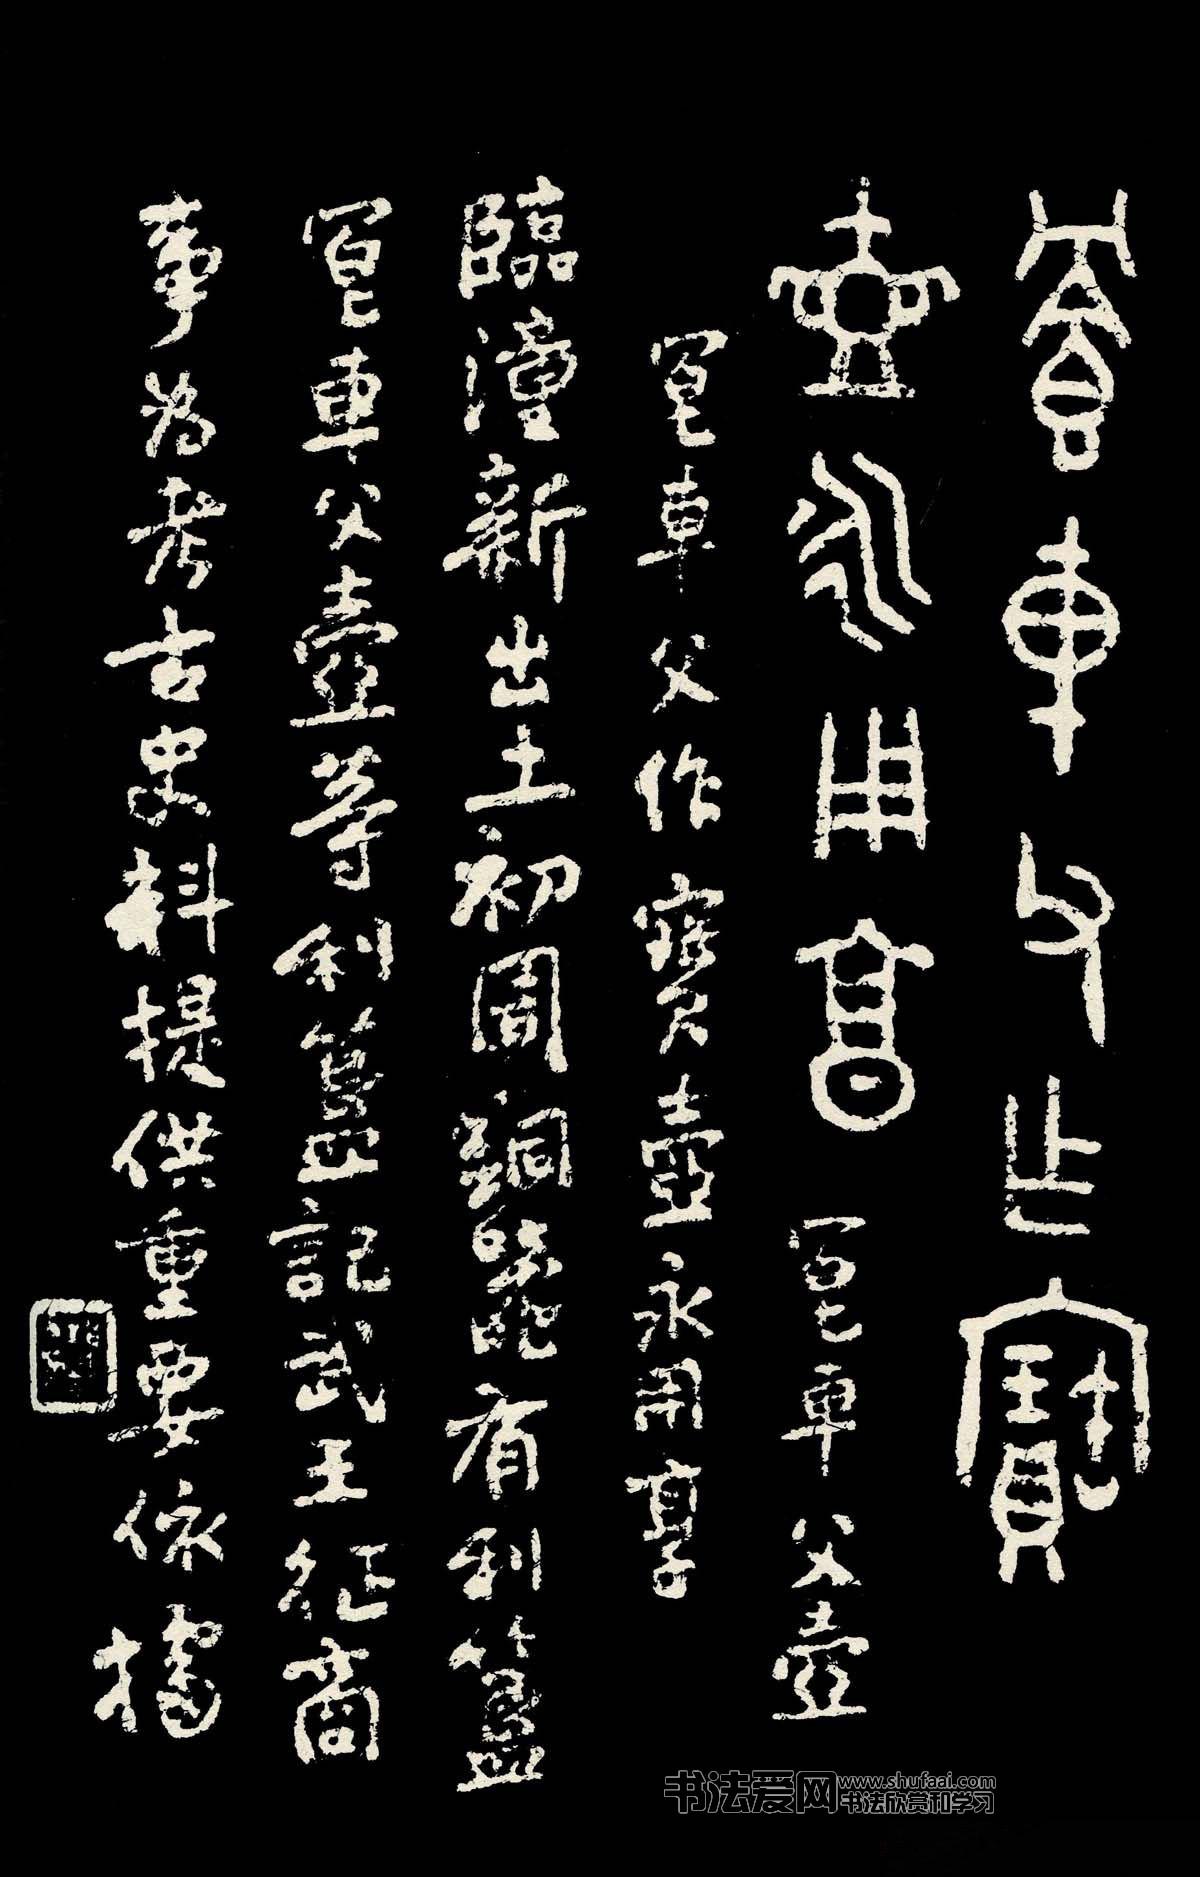 車父乍寶
壺永用享 車父壺
車父作寶壺永用享
臨潼新出土初周銅器有利簋
車父壺等利簋記武王征商
事為考古史料提供重要依據
书法爱网 www.shufaai.com
书法欣赏和学习